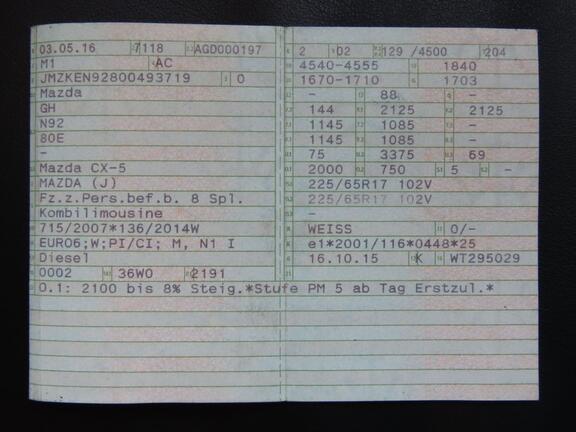 03.05.16 7118 AGD000197
M1 AC
JMZKEN92800493719 0
Mazda
GH
N92
80E
-
Mazda CX-5
MAZDA (J)
Fz.z.Pers.bef.b. 8 Spl.
Kombilimousine
715/2007*136/2014W
EURO6;W;PI/CI; M, N1 I
Diesel
0002 36W0 2191
2 02 129 /4500 204
4540-4555 1840
1670-1710 1703
- 88 -
144 2125 2125
1145 1085 -
1145 1085 -
75 3375 69
2000 750 5 -
225/65R17 102V
225/65R17 102V
-
WEISS 0/-
e1*2001/116*0448*25
16.10.15 K WT295029
O.1: 2100 bis 8% Steig.*Stufe PM 5 ab Tag Erstzul.*